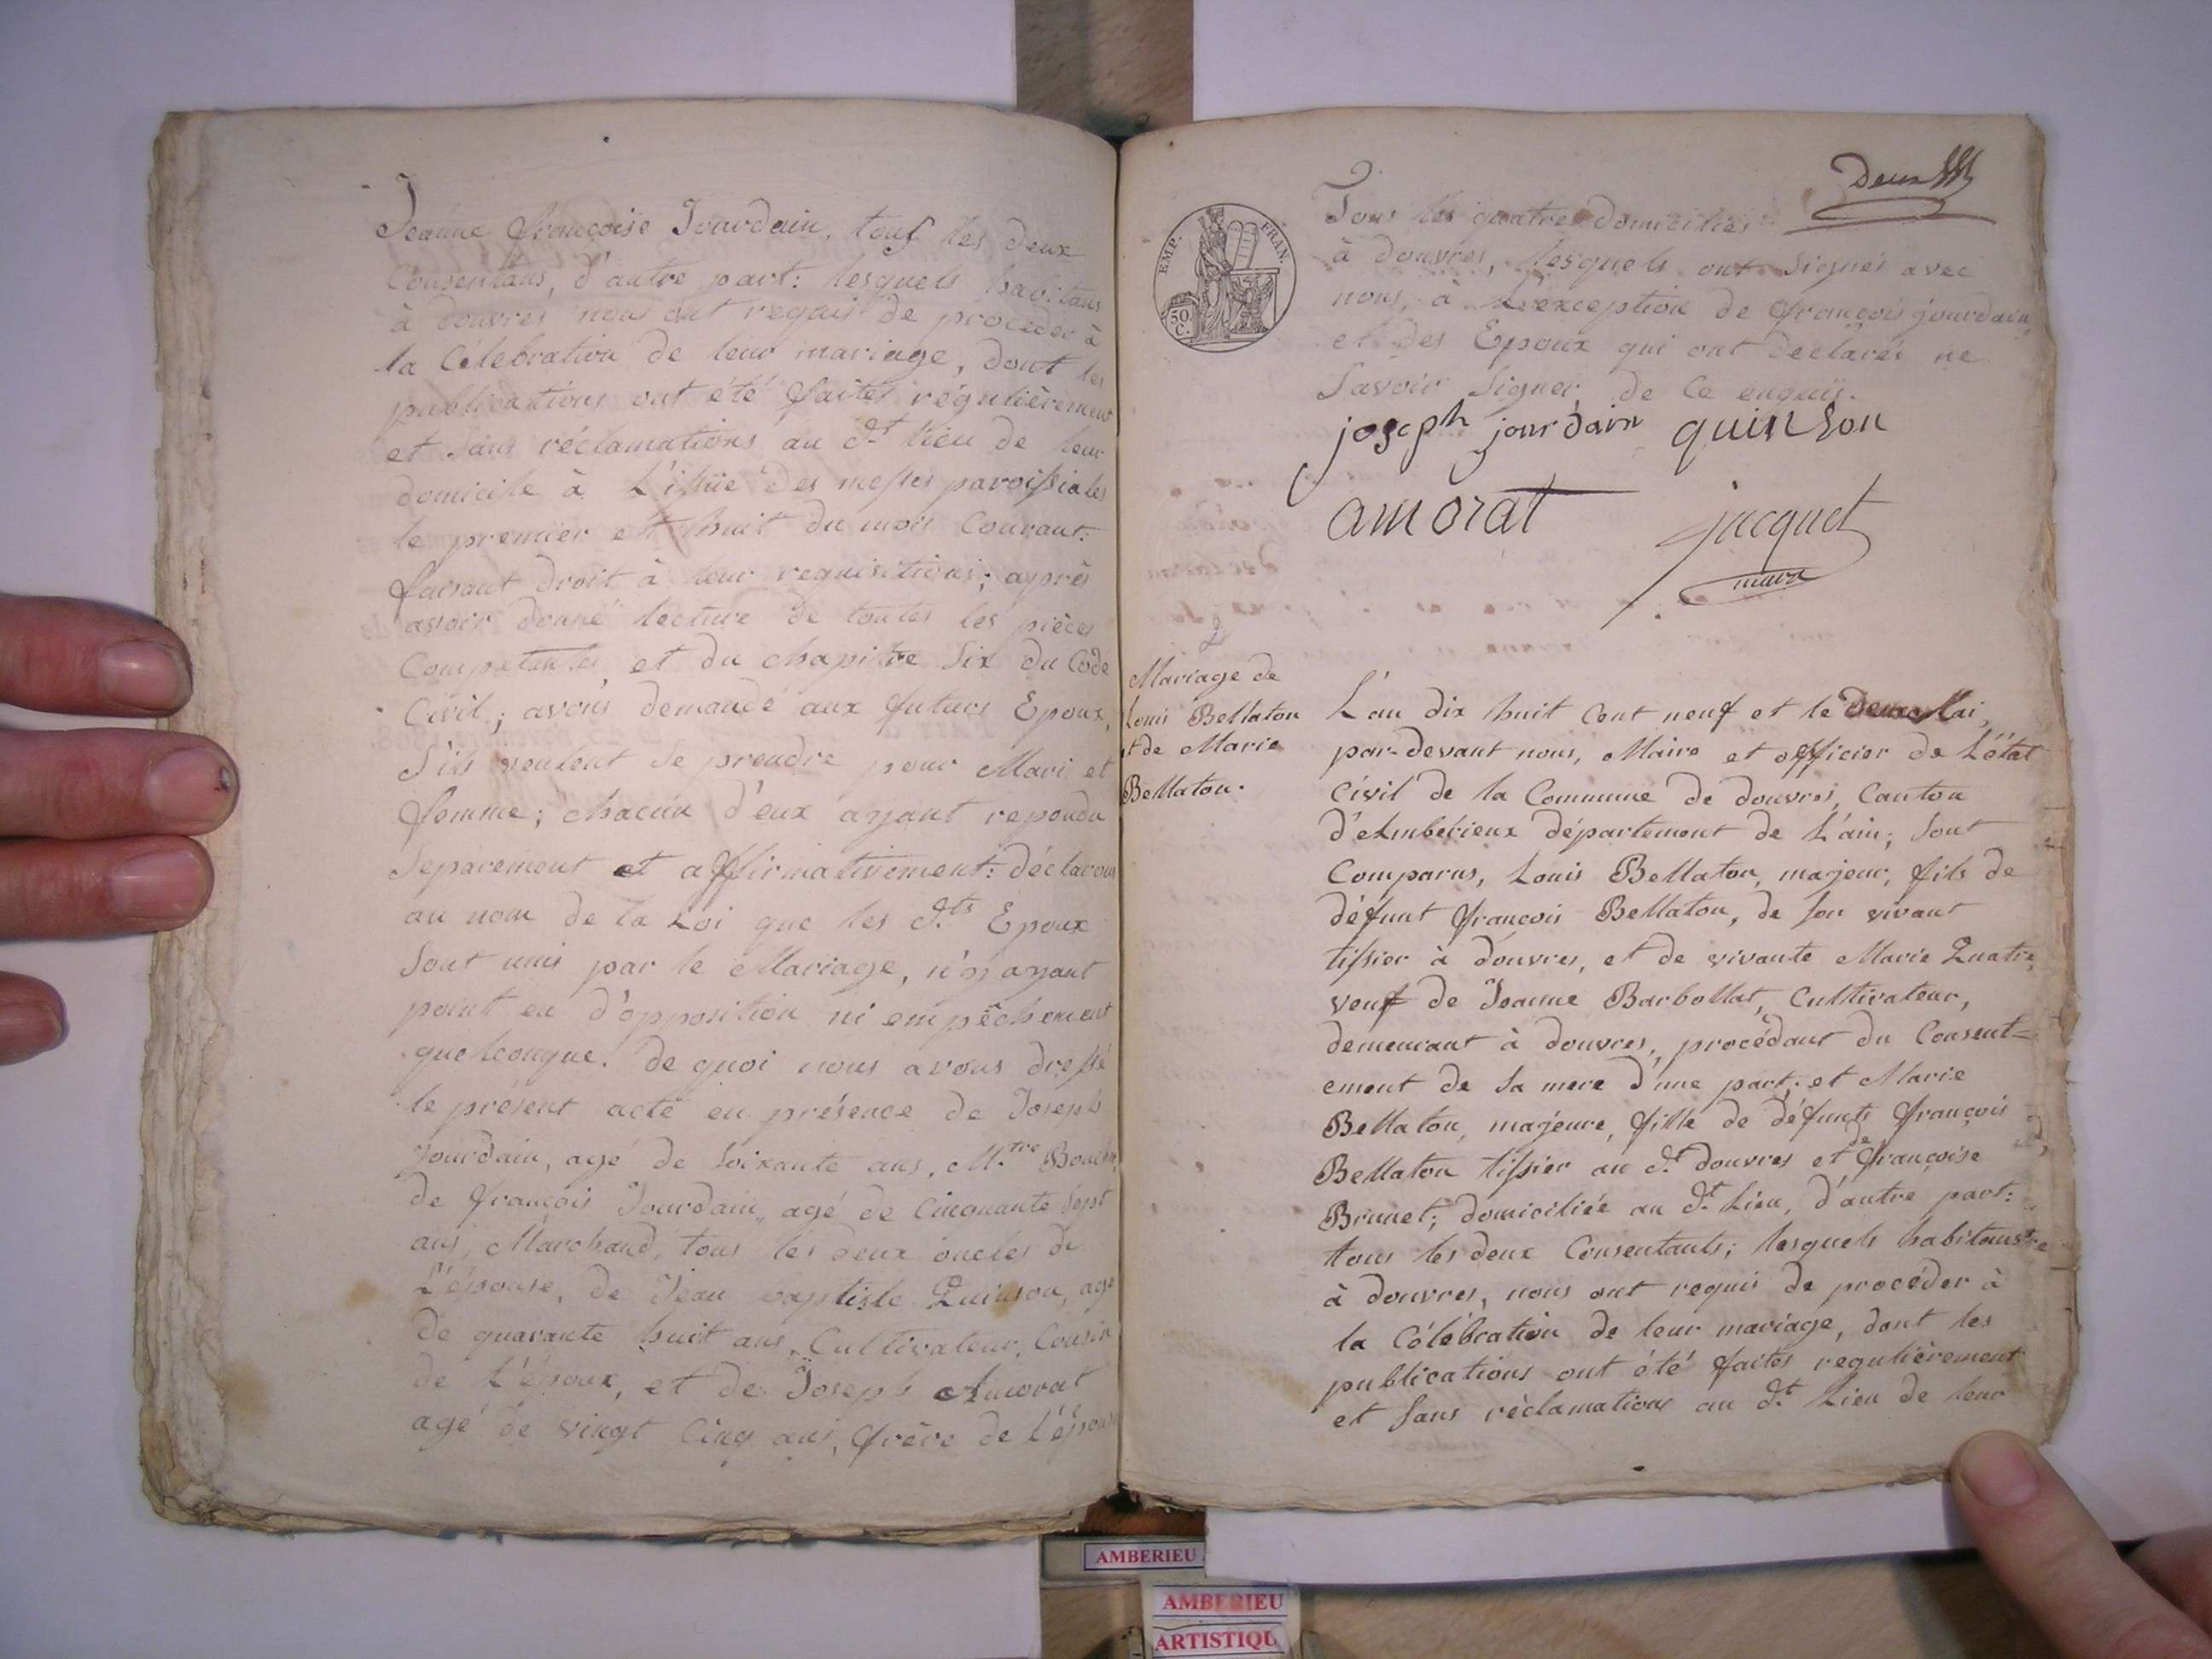 Jeanne françoise Jourdain, touſ les deux
Consentans, d'autre part: lesquels habitans
à douvres nous ont requis de procéder à
la Célébration de leur mariage, dont les
publications ont été faites régulièrement
et sans réclamations au d.t lieu de leur
domicile à L'issüe des messes paroissiales
le premier et huit du mois Courant:
faisant droit à leur requisitions; après
avoir donné lecture de toutes les pièces
Competantes, et du chapitre Six du Code
Civil; avons demandé aux futurs Epoux,
S'ils veulent se prendre pour Mari et
femme; chacun d'eux ayant repondu
Separement et affirmativement: déclarons
au nom de la Loi que les d.ts Epoux
Sont unis par le Mariage, n'y ayant
point eu d'opposition ni empêchement
quelconque. de quoi nous avons dressé
le présent acte en présence de Joseph
Jourdain, agé de Soixante ans, M.tre
de françois Jourdain, agé de Cinquante Sept
ans, Marchand, tous les deux oncles de
L'épouse, de Jean baptiste Quinson, agé
de quarante huit ans, Cultivateur, Cousin
de L'époux, et de Joseph Amorat
agé de vingt Cinq ans, frère de L'épouse
Deux
EMP. FRAN.
50 C.
Tous les quatre domiciliés
à douvres, lesquels ont Signés avec
nous, à L'exception de françois jourdain
et des Epoux qui ont déclarés ne
Savoir Signer, de Ce enquis.
joseph jourdain quinson
amorat jacquet
maire
Mariage de
Louis Bellaton
et de Marie
Bellaton.
L'an dix huit Cent neuf et le Deux Mai,
par-devant nous, Maire et officier de L'état
Civil de la Commune de douvres, Canton
d'Ambérieux département de L'ain; Sont
Comparus, Louis Bellaton, majeur, fils de
défunt françois Bellaton, de son vivant
tissier à douvres, et de vivante Marie Quatre,
veuf de Jeanne Barbollat, Cultivateur,
demeurant à douvres, procédant du Consent=
ement de Sa mere d'une part; et Marie
Bellaton, majeure, fille de défunts françois
Bellaton tissier au d.t douvres et de françoise
Brunet; domiciliée au d.t Lieu, d'autre part:
tous les deux Consentants; lesquels habitans
à douvres, nous ont requis de procéder à
la Célébration de leur mariage, dont les
publications ont été faites regulièrement
et Sans réclamations au d.t Lieu de leur
AMBERIEU
AMBERIEU
ARTISTIQU